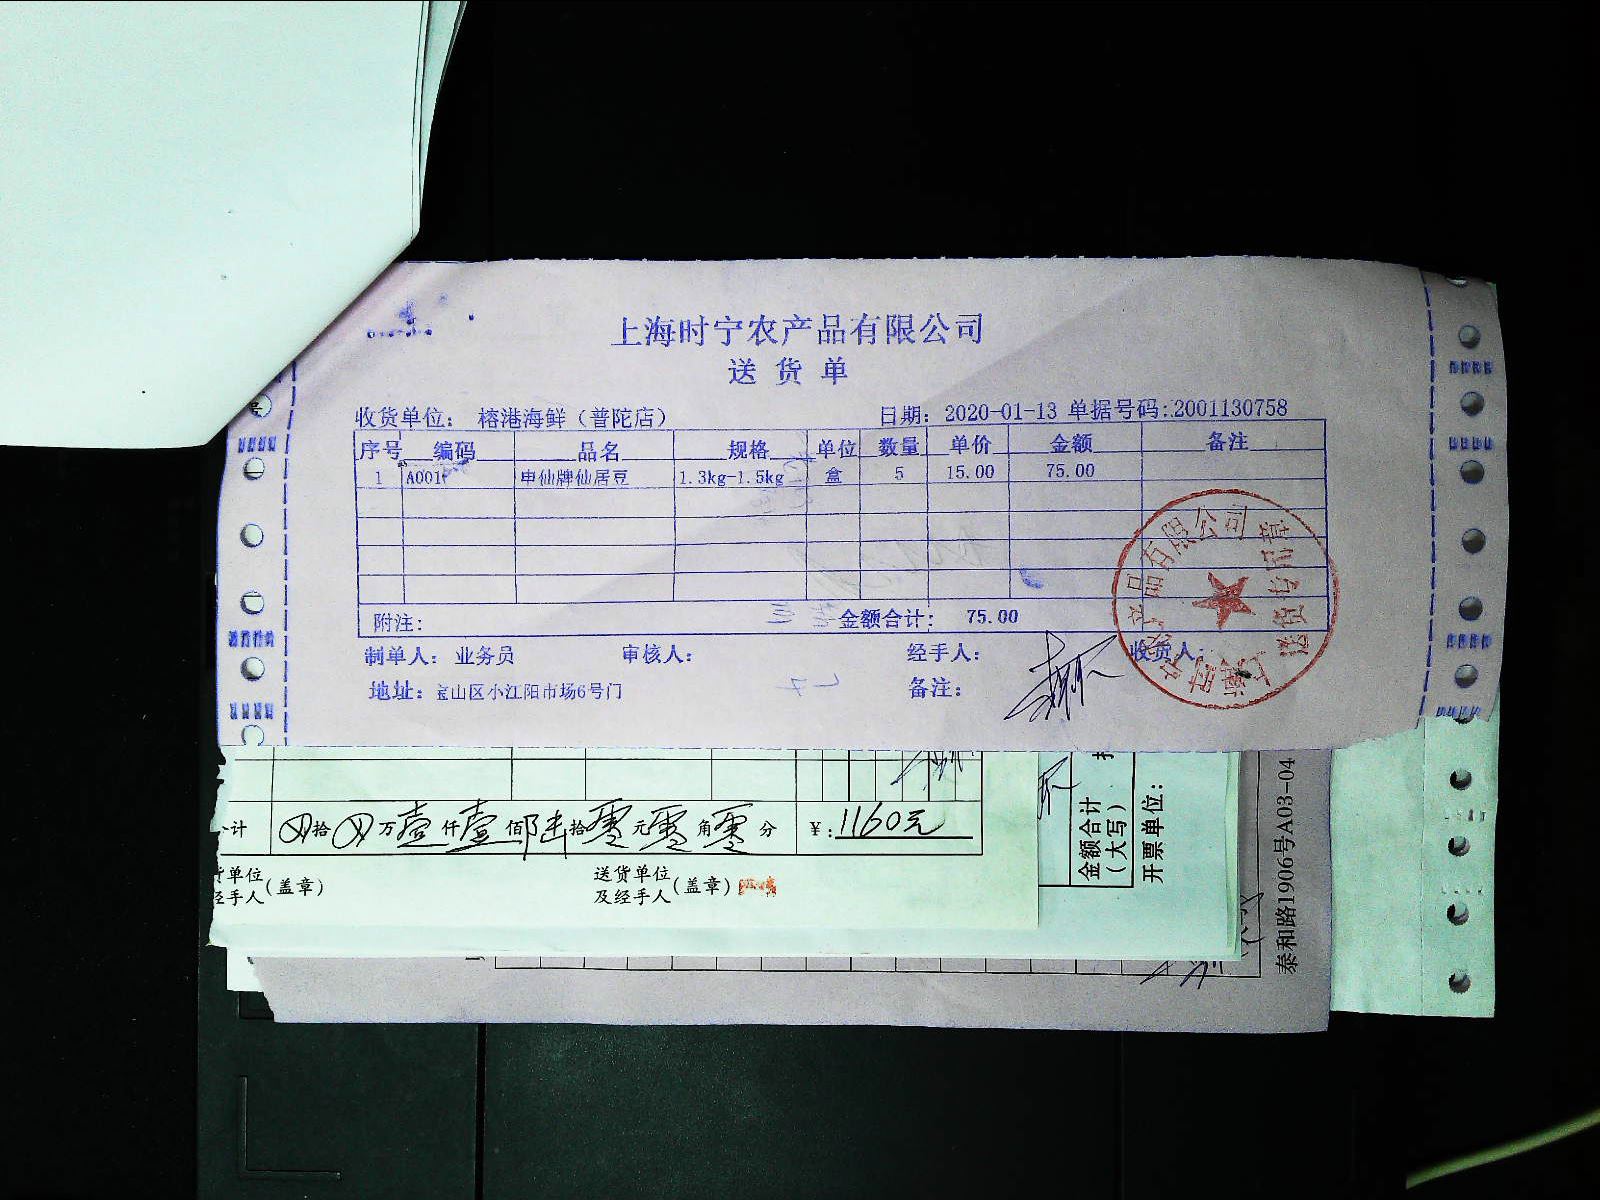 上海时宁农产品有限公司
送货单
收货单位： 榕港海鲜（普陀店）
日期： 2020-01-13 单据号码：2001130758
序号 编码 品名 规格 单位 数量 单价 金额 备注
1 A001 申仙牌仙居豆 1.3kg-1.5kg 盒 5 15.00 75.00
附注： 金额合计： 75.00
制单人： 业务员 审核人： 经手人： 收货人：
地址：宝山区小江阳市场6号门 备注：
计 拾 万壹仟壹佰陆拾零元零角零分 ¥：1160元
单位
经手人（盖章）
送货单位
及经手人（盖章）
金额合计
（大写）
开票单位：
泰和路1906号A03-04